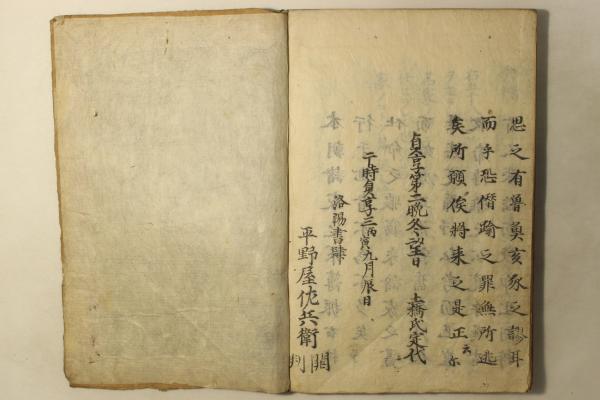 思之有魯奠亥豕之謬耳
而乎恐僭踰之罪無所逃
矣所願俟將来之是正云尓
貞享第二晩冬望日
土橋氏定代
于時貞享三丙寅九月辰日
洛陽書肆
平野屋佐兵衛
開刊